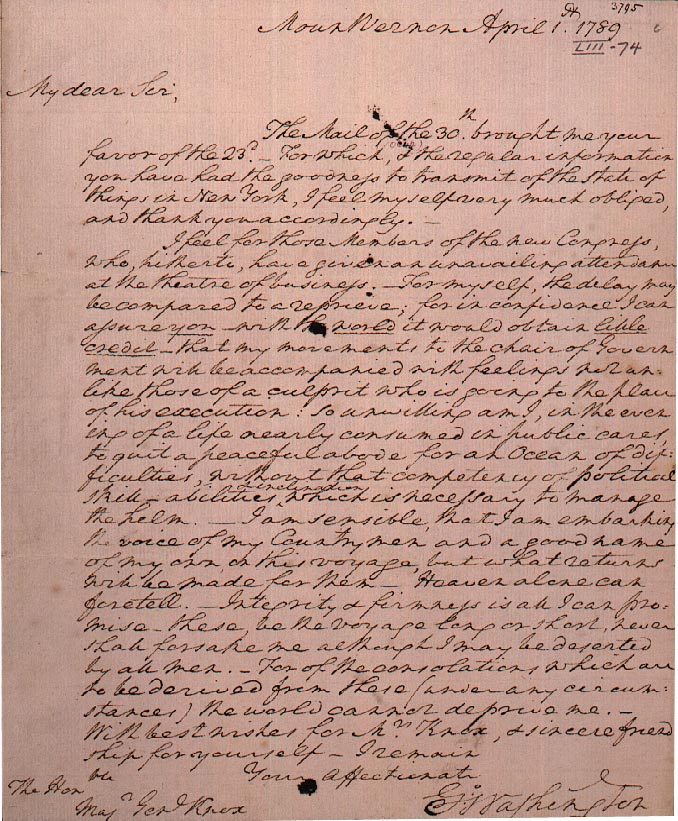 3795
Mount Vernon April 1.st 1789
LIII-74
My dear Sir,
The Mail of the 30th. brought me your
favor of the 23d. — For which, & the regular information
you have had the goodness to transmit of the state of
things in New York, I feel myself very much obliged,
and thank you accordingly. —
I feel for those Members of the new Congress,
who, hitherto, have given an unavailing attendance
at the theatre of business. — For myself, the delay may
be compared to a reprieve; for in confidence I can
assure you — with the world it would obtain little
credit — that my movements to the chair of Govern
ment will be accompanied with feelings not un-
like those of a culprit who is going to the place
of his execution: so unwilling am I, in the even
ing of a life nearly consumed in public cares,
to quit a peaceful abode for an Ocean of dif-
ficulties, without that competency of political
skill — abilities & inclination which is necessary to manage
the helm. — I am sensible, that I am embarking
the voice of my Countrymen and a good name
of my own, on this voyage, but what returns
will be made for them — Heaven alone can
foretell. — Integrity & firmness is all I can pro-
mise — these, be the voyage long or short, never
shall forsake me although I may be deserted
by all men. — For of the consolations which are
to be derived from these (under any circum-
stances) the world cannot deprive me. —
With best wishes for Mrs. Knox, & sincere friend
ship for yourself — I remain
Your affectionate
The Honble
Majr. Genl. Knox
Go: Washington